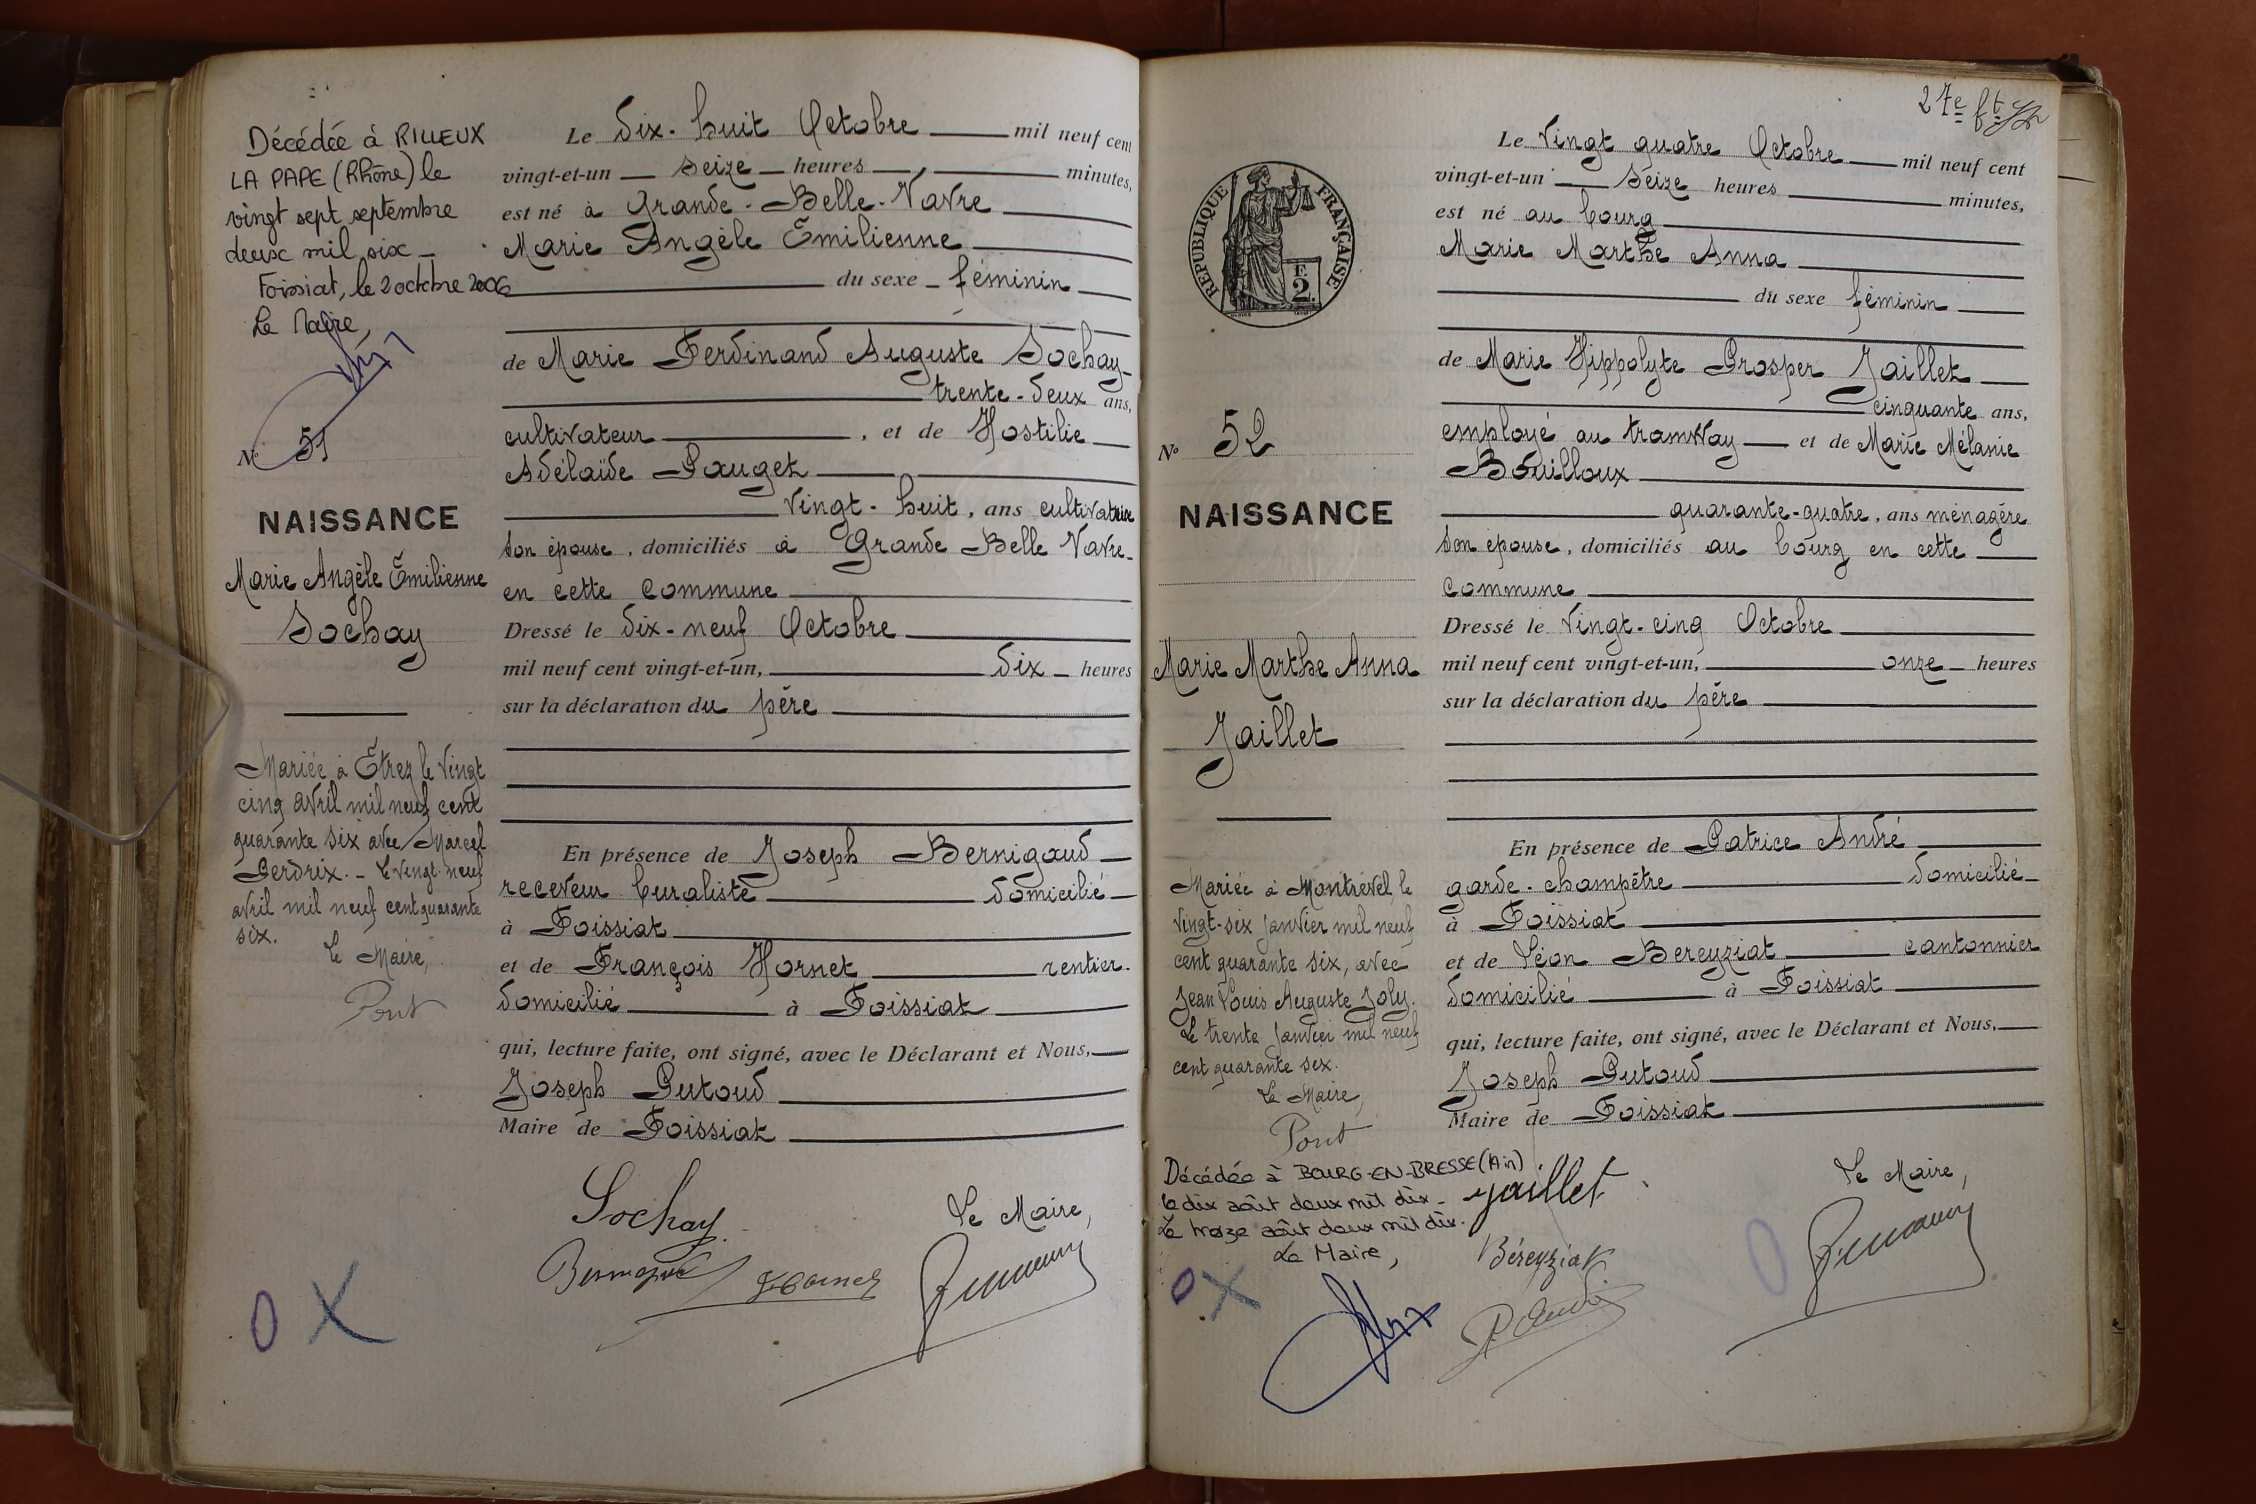 Décédée à RILLIEUX
LA PAPE (Rhône) le
vingt sept septembre
deux mil six _
Foissiat, le 2 octobre 2006
Le Maire,
N° 51
NAISSANCE
Marie Angèle Émilienne
Sochay
Mariée à Étrez le vingt
cinq avril mil neuf cent
quarante six avec Marcel
Perdrix. _ Le vingt-neuf
avril mil neuf cent quarante
six.
Le Maire,
Pont
O X
Le dix-huit Octobre mil neuf cent
vingt-et-un seize heures minutes,
est né à Grande-Belle-Vavre
Marie Angèle Émilienne
du sexe féminin
de Marie Ferdinand Auguste Sochay
trente-deux ans,
cultivateur , et de Hostilie
Adélaïde Pauget
vingt-huit, ans cultivatrice
son épouse, domiciliés à Grande Belle Vavre
en cette commune
Dressé le dix-neuf Octobre
mil neuf cent vingt-et-un, dix heures
sur la déclaration du père
En présence de Joseph Bernigaud
receveur buraliste domicilié
à Foissiat
et de François Hornet rentier
domicilié à Foissiat
qui, lecture faite, ont signé, avec le Déclarant et Nous,
Joseph Putoud
Maire de Foissiat
Sochay
Le Maire,
27e ft
RÉPUBLIQUE FRANÇAISE
F.
2.
N° 52
NAISSANCE
Marie Marthe Anna
Jaillet
Mariée à Montrevel le
vingt-six janvier mil neuf
cent quarante six, avec
Jean Louis Auguste Joly.
Le trente janvier mil neuf
cent quarante six.
Le Maire,
Pont
Décédée à BOURG-EN-BRESSE (Ain)
le dix août deux mil dix -
Le treize août deux mil dix.
Le Maire,
O X
Le vingt quatre Octobre mil neuf cent
vingt-et-un seize heures minutes,
est né au bourg
Marie Marthe Anna
du sexe féminin
de Marie Hippolyte Prosper Jaillet
cinquante ans,
employé au tramway et de Marie Mélanie
Bouilloux
quarante-quatre, ans ménagère
son épouse, domiciliés au bourg en cette
commune
Dressé le vingt-cinq Octobre
mil neuf cent vingt-et-un, onze heures
sur la déclaration du père
En présence de Patrice André
garde-champêtre domicilié
à Foissiat
et de Léon Bereyziat cantonnier
domicilié à Foissiat
qui, lecture faite, ont signé, avec le Déclarant et Nous,
Joseph Putoud
Maire de Foissiat
Jaillet
Le Maire,
Béreyziat
P. André
O